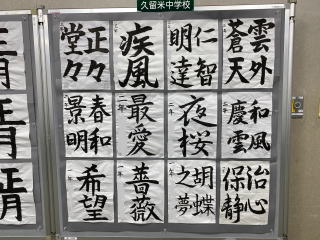 久留米中学校
雲外
蒼天
仁智
明達
疾風
正々
堂々
和風
慶雲
夜桜
最愛
春和
景明
治心
保静
胡蝶
之夢
薔薇
希望
正月
正月